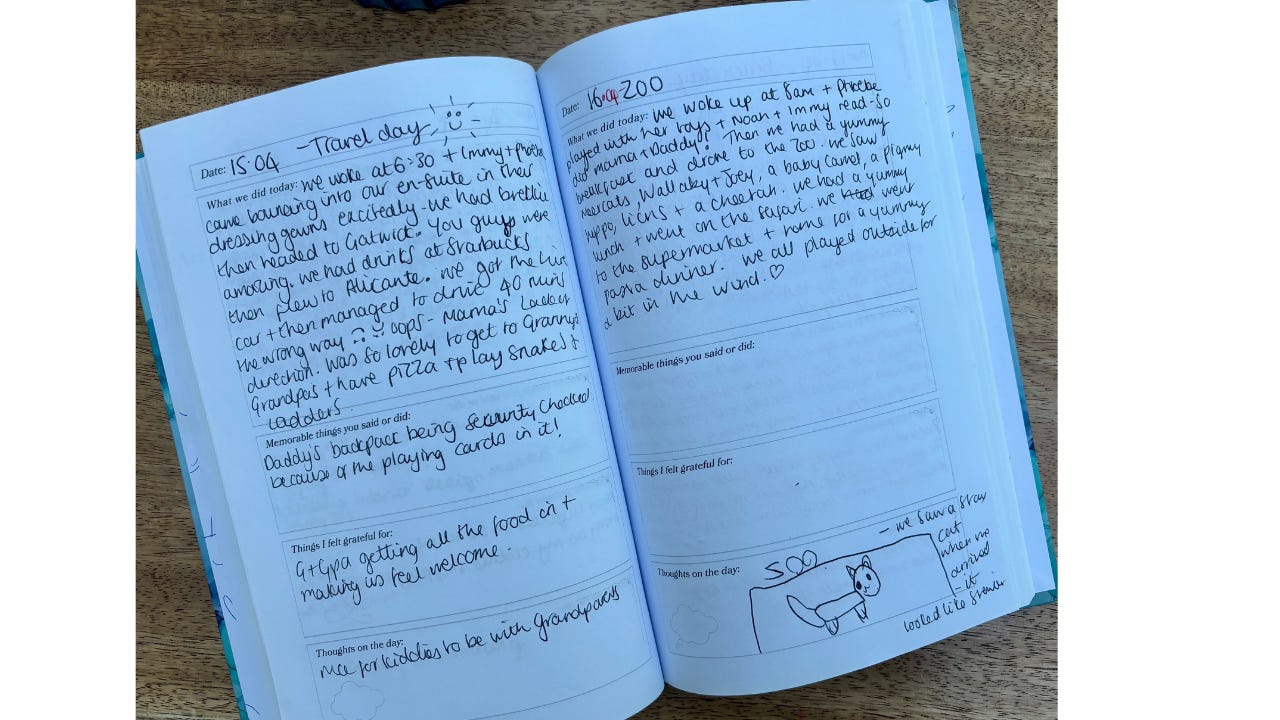 Date: 15.04 - Travel day
What we did today: we woke at 6:30 + Immy + Phoebe
came bouncing into our en-suite in their
dressing gowns excitedly - we had brekkie
then headed to Gatwick. You guys were
amazing. we had drinks at Starbucks
then flew to Alicante. we got the hire
car + then managed to drive 40 mins
the wrong way oops - Mama's lack of
direction. Was so lovely to get to Granny +
Grandpas + have pizza + play snakes +
Ladders.
Memorable things you said or did:
Daddy's backpack being security checked
because of the playing cards in it!
Things I felt grateful for:
G+Gpa getting all the food in +
making us feel welcome.
Thoughts on the day:
nice for kiddies to be with Grandparents
Date: 16.04 ZOO
What we did today: we woke up at 8am + Phoebe
played with her toys + Noah + Immy read - so
did mama + Daddy! Then we had a yummy
breakfast and drove to the Zoo. we saw
meercats, Wallaby + Joey, a baby Camel, a pigmy
hippo, lions + a cheetah. we had a yummy
lunch + went on the safari. we went
to the supermarket + home for a yummy
pasta dinner. we all played outside for
a bit in the wind. ♡
Memorable things you said or did:
Things I felt grateful for:
Thoughts on the day:
ZOO
- we saw a stray
cat
when we
arrived
- it
looked like